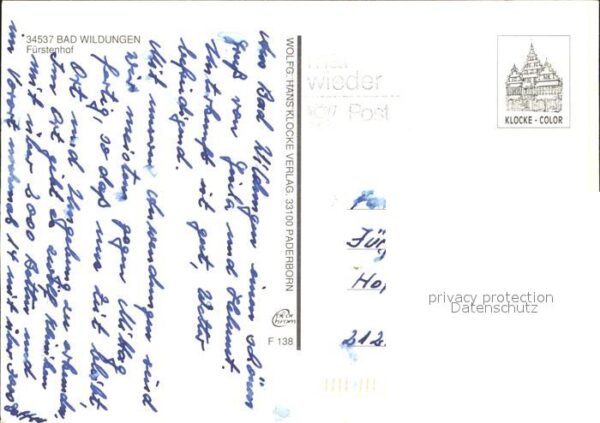 34537 BAD WILDUNGEN
Fürstenhof
Aus Bad Wildungen einen schönen
Gruß von Gerta und Helmut.
Unterkunft ist gut, Wetter
befriedigend.
Mit unseren Anwendungen sind
wir meistens gegen Mittag
fertig, so daß uns Zeit bleibt,
Ort und Umgebung zu erkunden.
Im Ort gibt es zwölf Kliniken
mit über 2000 Betten und
im Vorort nochmal 14 mit über
WOLFG. HANS KLOCKE VERLAG, 33100 PADERBORN
F 138
mal
wieder
Post
KLOCKE - COLOR
Jür
Ho
212
privacy protection
Datenschutz